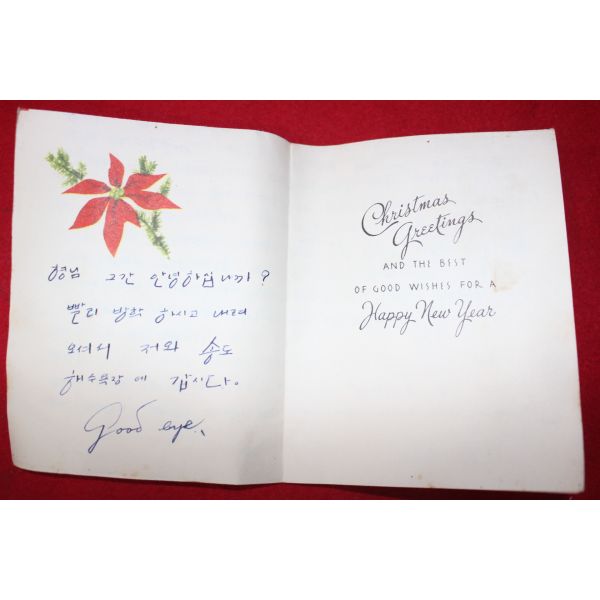 형님 그간 안녕하십니까?
빨리 방학 하시고 내려
오셔서 저와 송도
해수욕장에 갑시다.
Good eye.
Christmas
Greetings
AND THE BEST
OF GOOD WISHES FOR A
Happy New Year